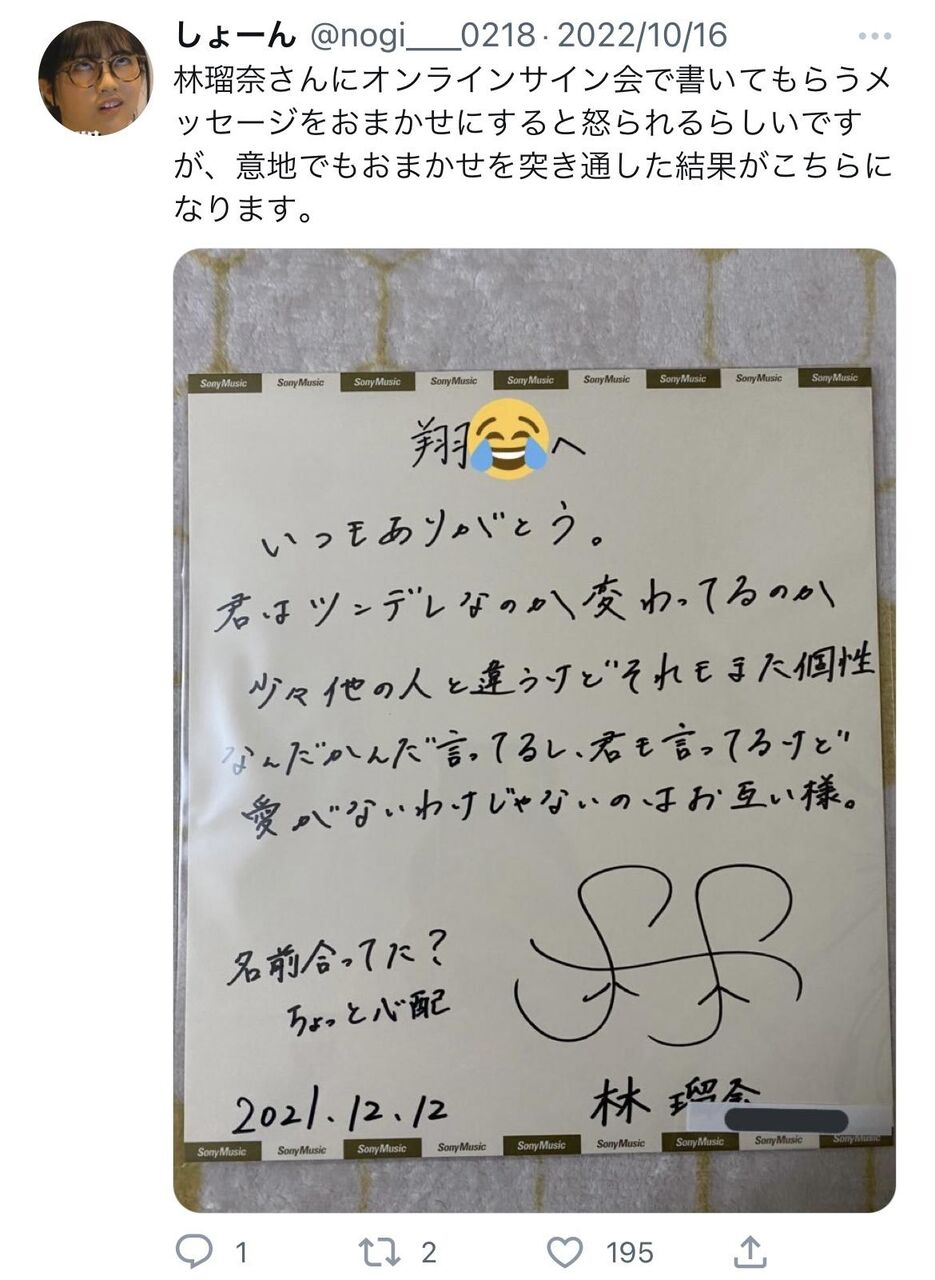 しょーん @nogi___0218 · 2022/10/16
林瑠奈さんにオンラインサイン会で書いてもらうメ
ッセージをおまかせにすると怒られるらしいです
が、意地でもおまかせを突き通した結果がこちらに
なります。
SonyMusic SonyMusic SonyMusic SonyMusic SonyMusic SonyMusic SonyMusic SonyMusic SonyMusic
翔😂へ
いつもありがとう。
君はツンデレなのか変わってるのか
少々他の人と違うけどそれもまた個性
なんだかんだ言ってるし、君も言ってるけど
愛がないわけじゃないのはお互い様。
名前合ってた?
ちょっと心配
2021.12.12
林 瑠奈
SonyMusic SonyMusic SonyMusic SonyMusic SonyMusic SonyMusic SonyMusic SonyMusic SonyMusic
1 2 195